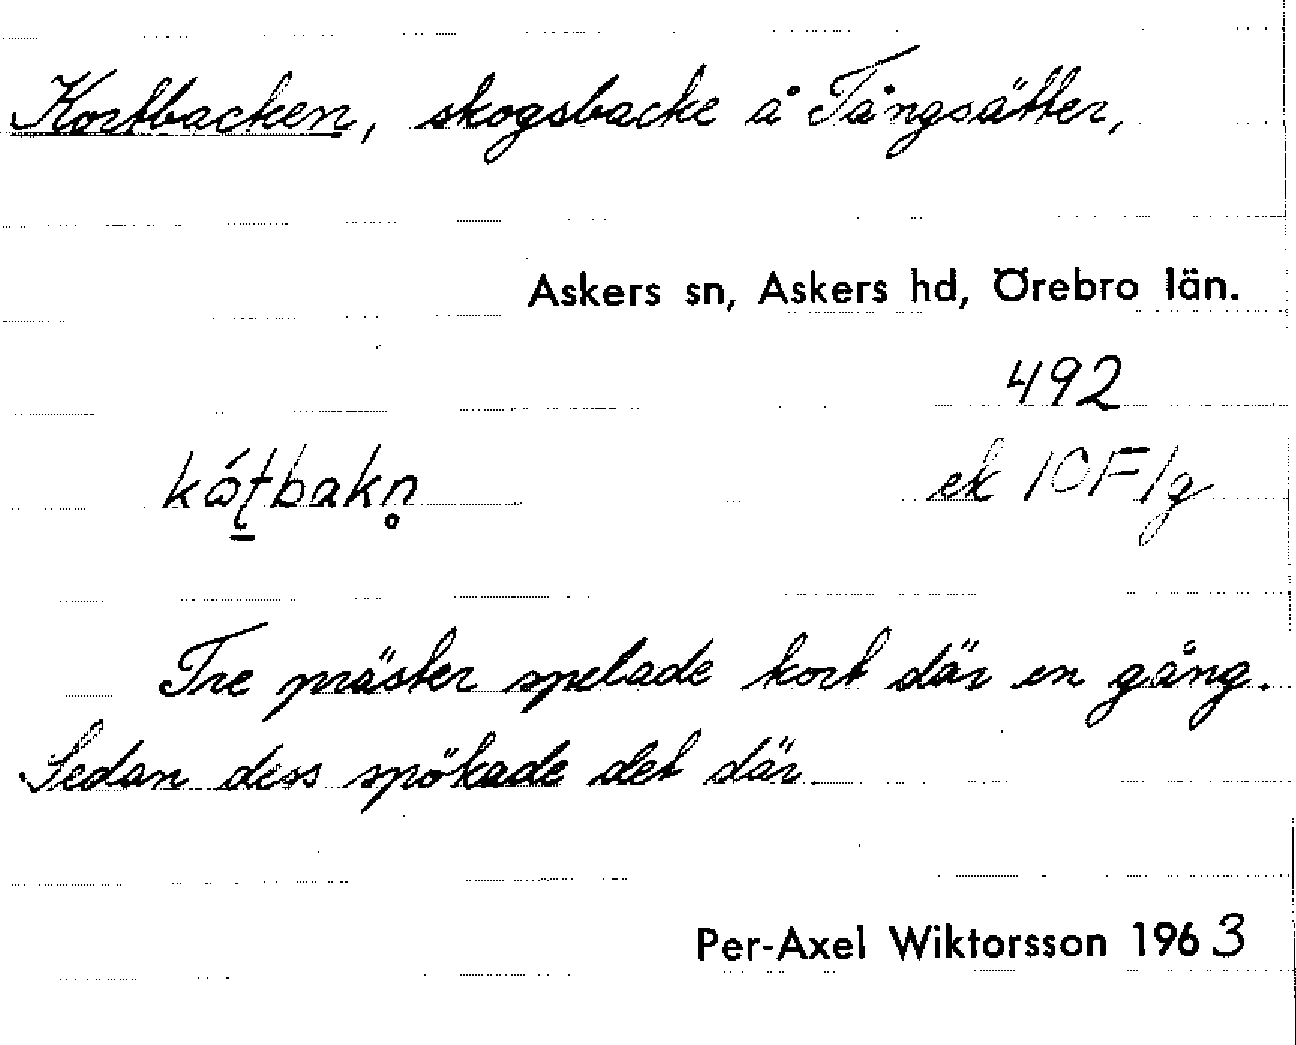 Kortbacken, skogsbacke å Tångsätter,
Askers sn, Askers hd, Örebro län.
492
kɷ́ʈbakn̥ ek 10F1g
Tre präster spelade kort där en gång.
Sedan dess spökade det där.
Per-Axel Wiktorsson 1963